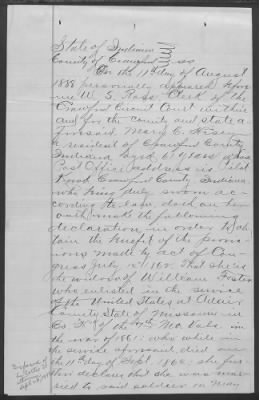 State of Indiana
County of Crawford ss
On the 11th day of August
1888 personally appeared before
me W. S. Ross Clerk of the
Crawford Circuit Court within
and for the county and state a
foresaid Mary E.
a resident of Crawford County
Indiana aged 61 years whose
Post Office address is
Crawford County Indiana
who being duly sworn ac
cording to law, doth on her
oath make the following
declaration in order to ob
tain the benefit of the provi
sions made by act of Con
gress July 14th 1862 That she is
the widow of William
who enlisted in the service
of the United States at Adair
County State of Missouri in
Co. of the Mo. Vols. in
the war of 1861: who while in
the service aforesaid died on
the 11th day of Sept 1862: she fur
ther declares that she was mar
ried to said soldier in May